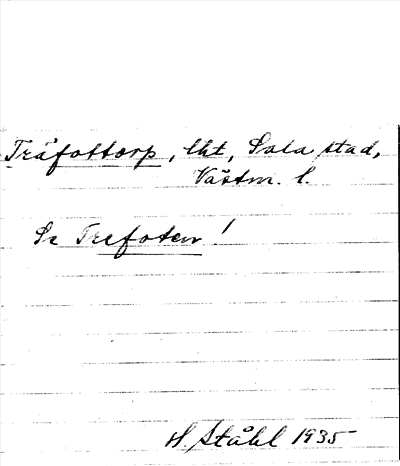 Träfottorp, lht, Sala stad,
Västm. l.
Se Trefoten!
H. Ståhl 1935